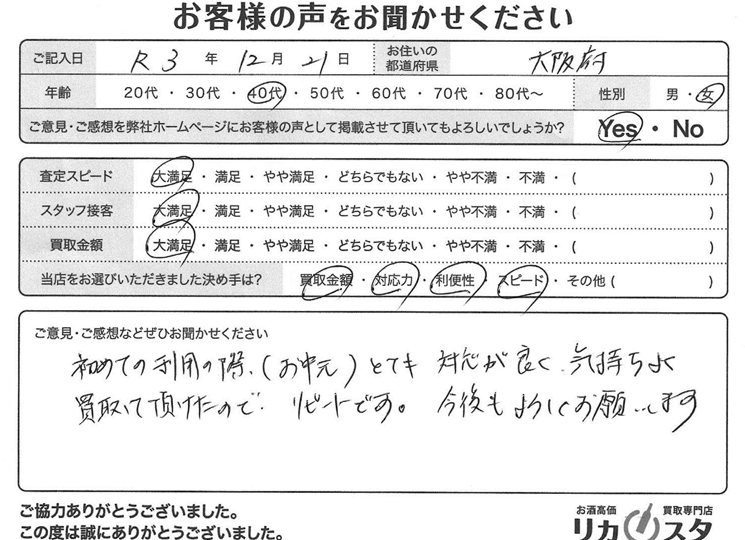 お客様の声をお聞かせください
ご記入日 R3年12月21日 お住いの都道府県 大阪府
年齢 20代・30代・40代・50代・60代・70代・80代〜 性別 男・女
ご意見・ご感想を弊社ホームページにお客様の声として掲載させて頂いてもよろしいでしょうか? Yes・No
査定スピード 大満足・満足・やや満足・どちらでもない・やや不満・不満・( )
スタッフ接客 大満足・満足・やや満足・どちらでもない・やや不満・不満・( )
買取金額 大満足・満足・やや満足・どちらでもない・やや不満・不満・( )
当店をお選びいただきました決め手は? 買取金額・対応力・利便性・スピード・その他( )
ご意見・ご感想などぜひお聞かせください
初めての利用の際、(お中元)とても 対応が良く、気持ちよく
買取って頂けたので リピートです。 今後もよろしくお願いします
ご協力ありがとうございました。
この度は誠にありがとうございました。
お酒高価 買取専門店
リカスタ